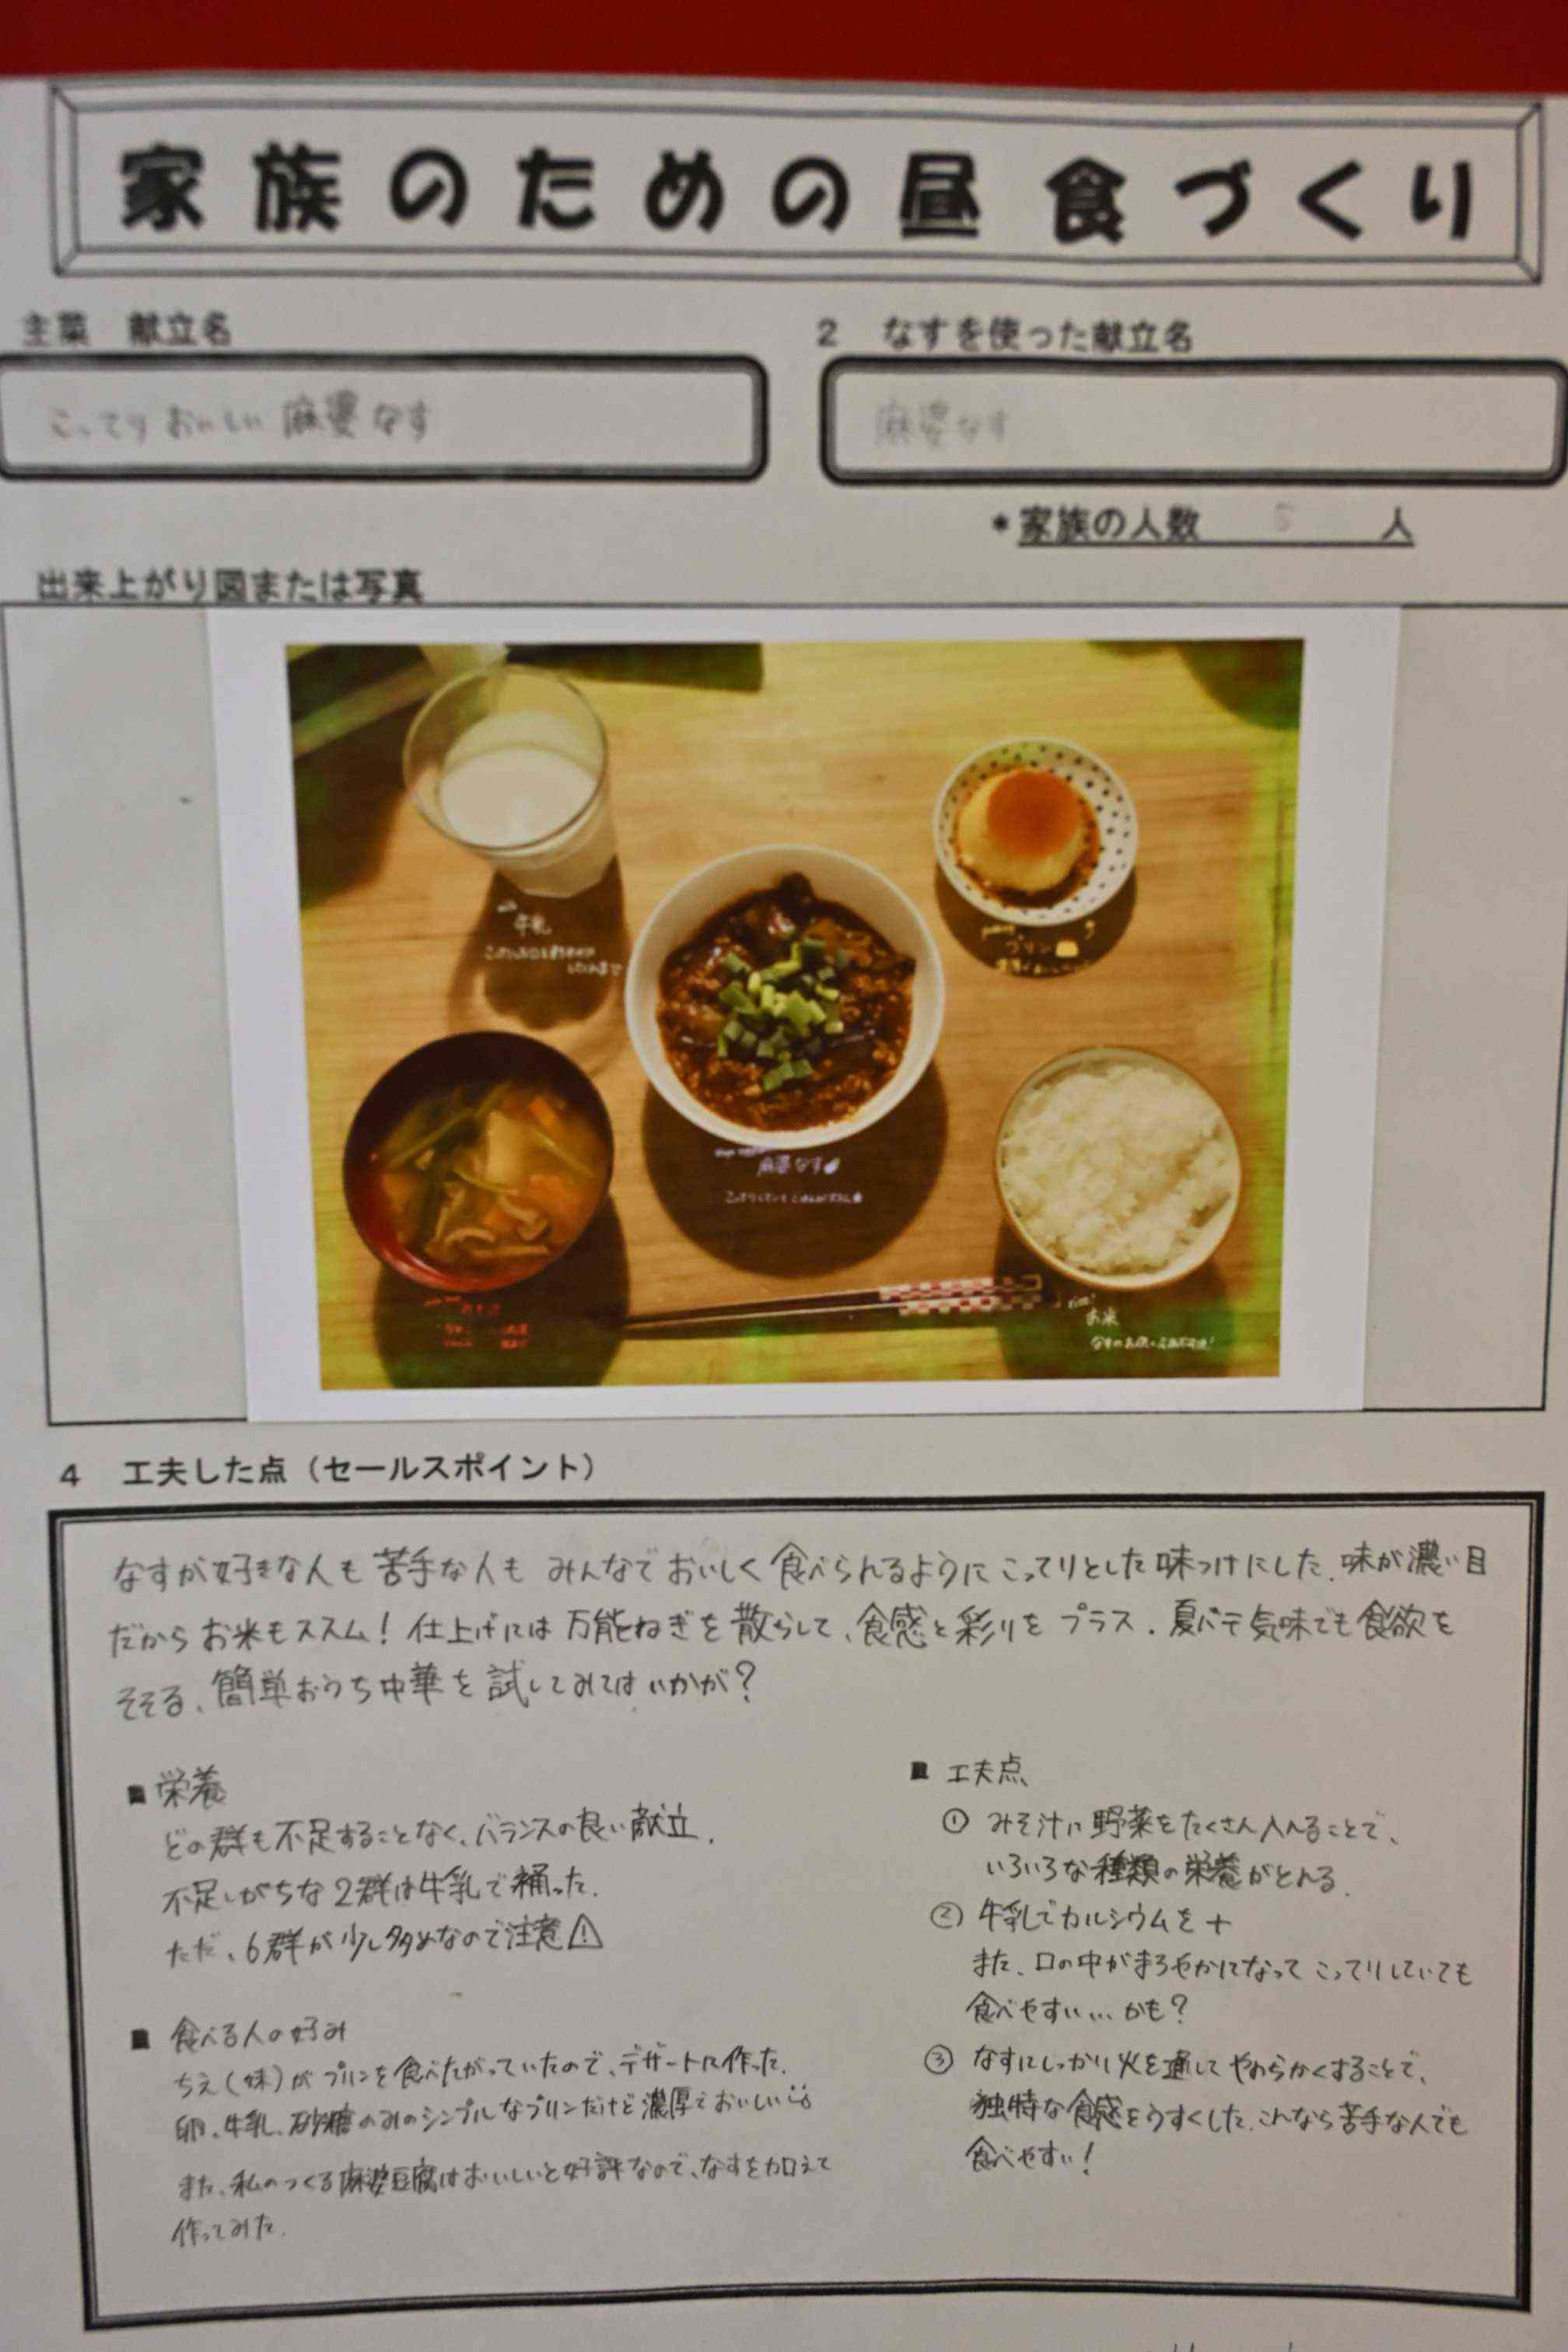 家族のための昼食づくり
主菜　献立名
2　なすを使った献立名
こってりおいしい麻婆なす
麻婆なす
*家族の人数　5　人
出来上がり図または写真
牛乳
プリン
麻婆なす
お米
4　工夫した点（セールスポイント）
なすが好きな人も苦手な人もみんなでおいしく食べられるようにこってりとした味つけにした。味が濃い目
だからお米もススム！仕上げには万能ねぎを散らして、食感と彩りをプラス。夏バテ気味でも食欲を
そそる、簡単おうち中華を試してみてはいかが？
■栄養
どの群も不足することなく、バランスの良い献立。
不足しがちな2群は牛乳で補った。
ただ、6群が少し多めなので注意⚠
■食べる人の好み
ちえ(妹)がプリンを食べたがっていたので、デザートに作った。
卵、牛乳、砂糖のみのシンプルなプリンだけど濃厚でおいしい
また、私のつくる麻婆豆腐はおいしいと好評なので、なすを加えて
作ってみた。
■工夫点
①みそ汁に野菜をたくさん入れることで、
いろいろな種類の栄養がとれる。
②牛乳でカルシウムを+
また、口の中がまろやかになってこってりしていても
食べやすい…かも？
③なすにしっかり火を通してやわらかくすることで、
独特な食感をうすくした。これなら苦手な人でも
食べやすい！